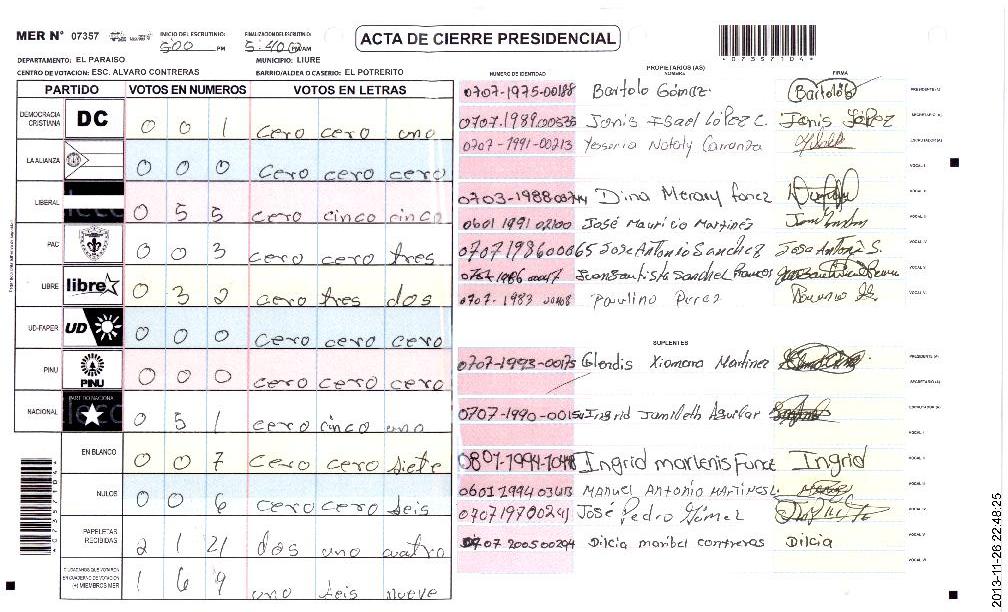 MER N° 07357
INICIO DEL ESCRUTINIO:
500 PM
FINALIZACION ESCRUTINIO:
5:40 PM/AM
ACTA DE CIERRE PRESIDENCIAL
*07357104*
DEPARTAMENTO: EL PARAISO
MUNICIPIO: LIURE
CENTRO DE VOTACION: ESC. ALVARO CONTRERAS
BARRIO/ALDEA O CASERIO: EL POTRERITO
PARTIDO VOTOS EN NUMEROS VOTOS EN LETRAS
DEMOCRACIA CRISTIANA DC 0 0 1 cero cero uno
LA ALIANZA 0 0 0 cero cero cero
LIBERAL 0 5 5 cero cinco cinco
PAC 0 0 3 cero cero tres
LIBRE libre 0 3 2 cero tres dos
UD-FAPER UD 0 0 0 cero cero cero
PINU PINU 0 0 0 cero cero cero
NACIONAL 0 5 1 cero cinco uno
EN BLANCO 0 0 7 cero cero siete
NULOS 0 0 6 cero cero seis
PAPELETAS RECIBIDAS 2 1 dos uno cuatro
CIUDADANOS QUE VOTARON
EN CUADERNO DE VOTACION
(+) MIEMBROS MER 1 6 9 uno seis nueve
PROPIETARIOS (AS)
NUMERO DE IDENTIDAD NOMBRE FIRMA
0707-1975-00188 Bartolo Gómez. Bartolo G PRESIDENTE (A)
0707.1989.00535 Jonis Isael López C. Jonis López SECRETARIO (A)
0707-1991-00213 Yesenia Nataly Carranza ESCRUTADOR (A)
VOCAL I
0703-1988 Dina Merary
0601 1991 02100 José Mauricio Martinez
0707198600065 Jose Antonio Sanchez Jose Antonio S. VOCAL IV
VOCAL V
0707-1983 00168 Paulino Perez
SUPLENTES
0707-1993-00175 Glendis Xiomara Martinez PRESIDENTE (A)
SECRETARIO (A)
0707-1990-00154 Ingrid Jamileth Aguilar ESCRUTADOR (A)
VOCAL I
0801-1994-1048 Ingrid marlenis Funez Ingrid
0601 1994 03413 Manuel Antonio MARTINES L.
0707197000241 José Pedro Gómez
0707 200500294 Dilcia maribel contreras Dilcia VOCAL V
2013-11-26 22:48:25